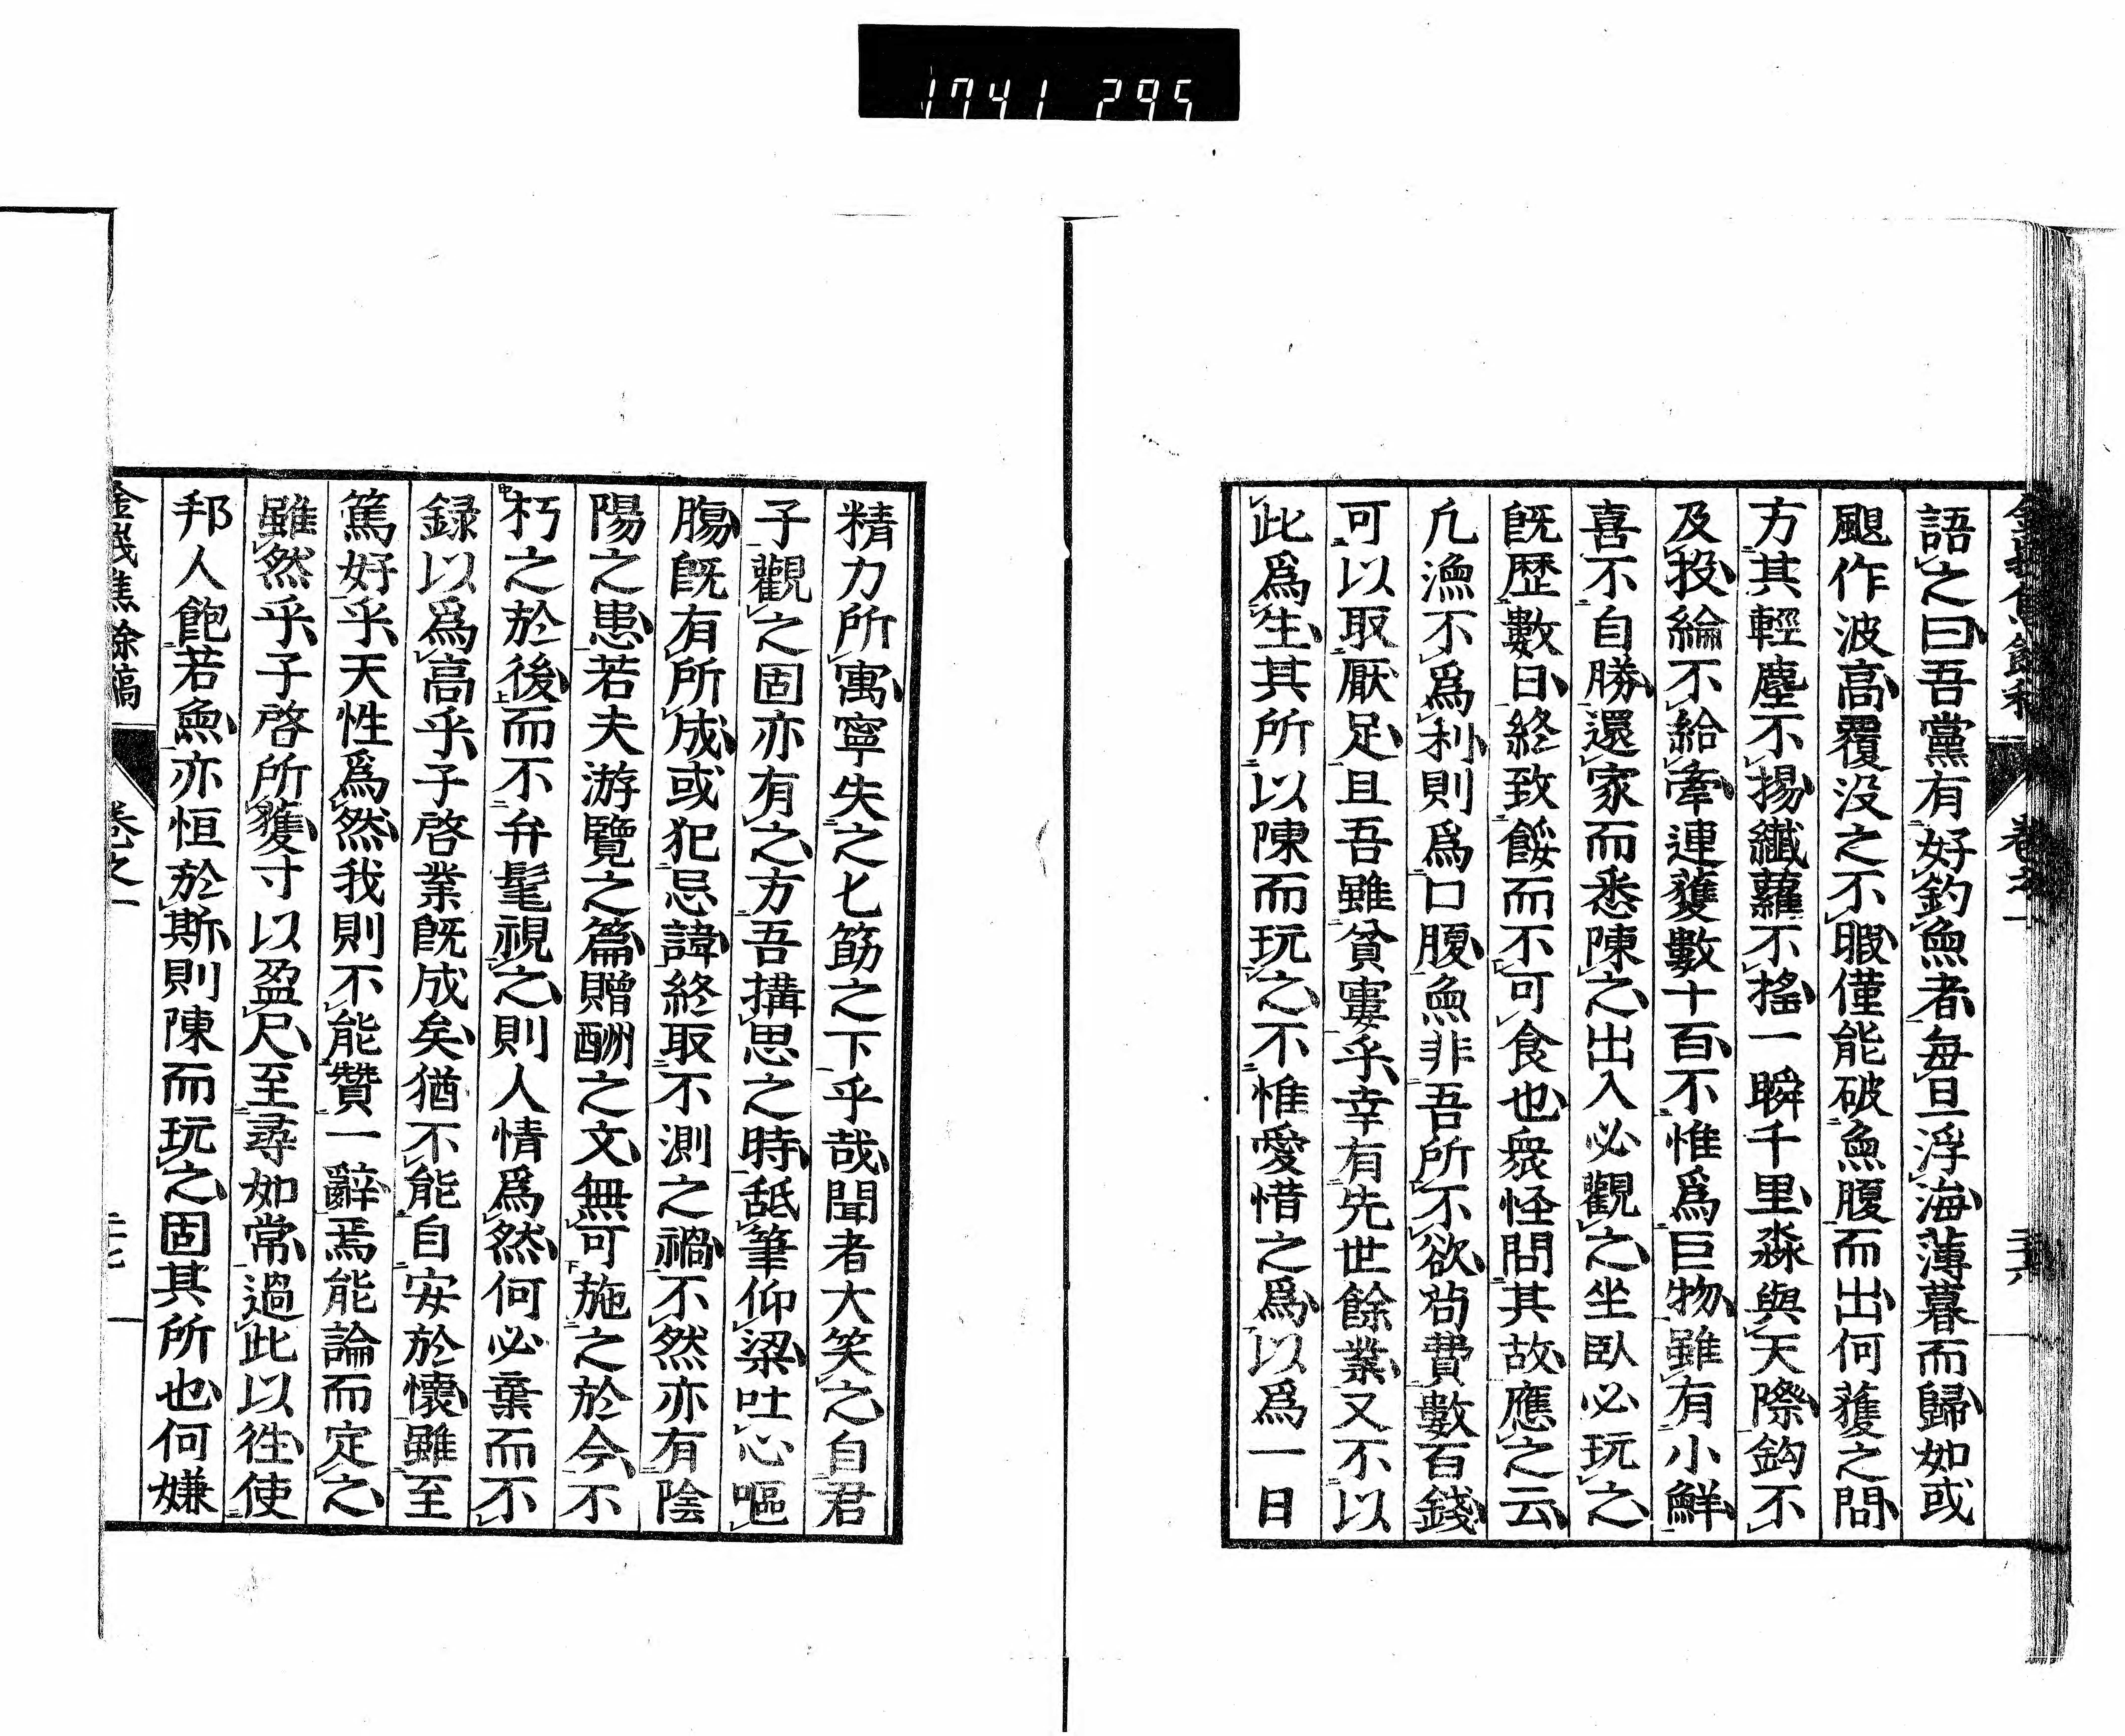 1741 295
語之曰吾黨有好釣魚者每旦浮海薄暮而歸如或
颶作波高覆没之不暇僅能破魚腹而出何獲之問
方其輕塵不揚纖蘿不搖一瞬千里淼與天際鈎不
及投綸不給牽連獲數十百不惟爲巨物雖有小鮮
喜不自勝還家而悉陳之出入必觀之坐臥必玩之
既歴數日終致餒而不可食也衆怪問其故應之云
凢漁不爲利則爲口腹魚非吾所不欲苟費數百錢
可以取厭足且吾雖貧寠乎幸有先世餘業又不以
此爲生其所以陳而玩之不惟愛惜之爲以爲一日
精力所寓寧失之匕筯之下乎哉聞者大笑之自君
子觀之固亦有之方吾搆思之時舐筆仰梁吐心嘔
膓既有所成或犯忌諱終取不測之禍不然亦有陰
陽之患若夫游覽之篇贈酬之文無可施之於今不
朽之於後而不弁髦視之則人情爲然何必棄而不
録以爲高乎子啓業既成矣猶不能自安於懷雖至
篤好乎天性爲然我則不能贊一辭焉能論而定之
雖然乎子啓所獲寸以盈尺至尋如常過此以徃使
邦人飽若魚亦恒於斯則陳而玩之固其所也何嫌
餘稿 卷之一